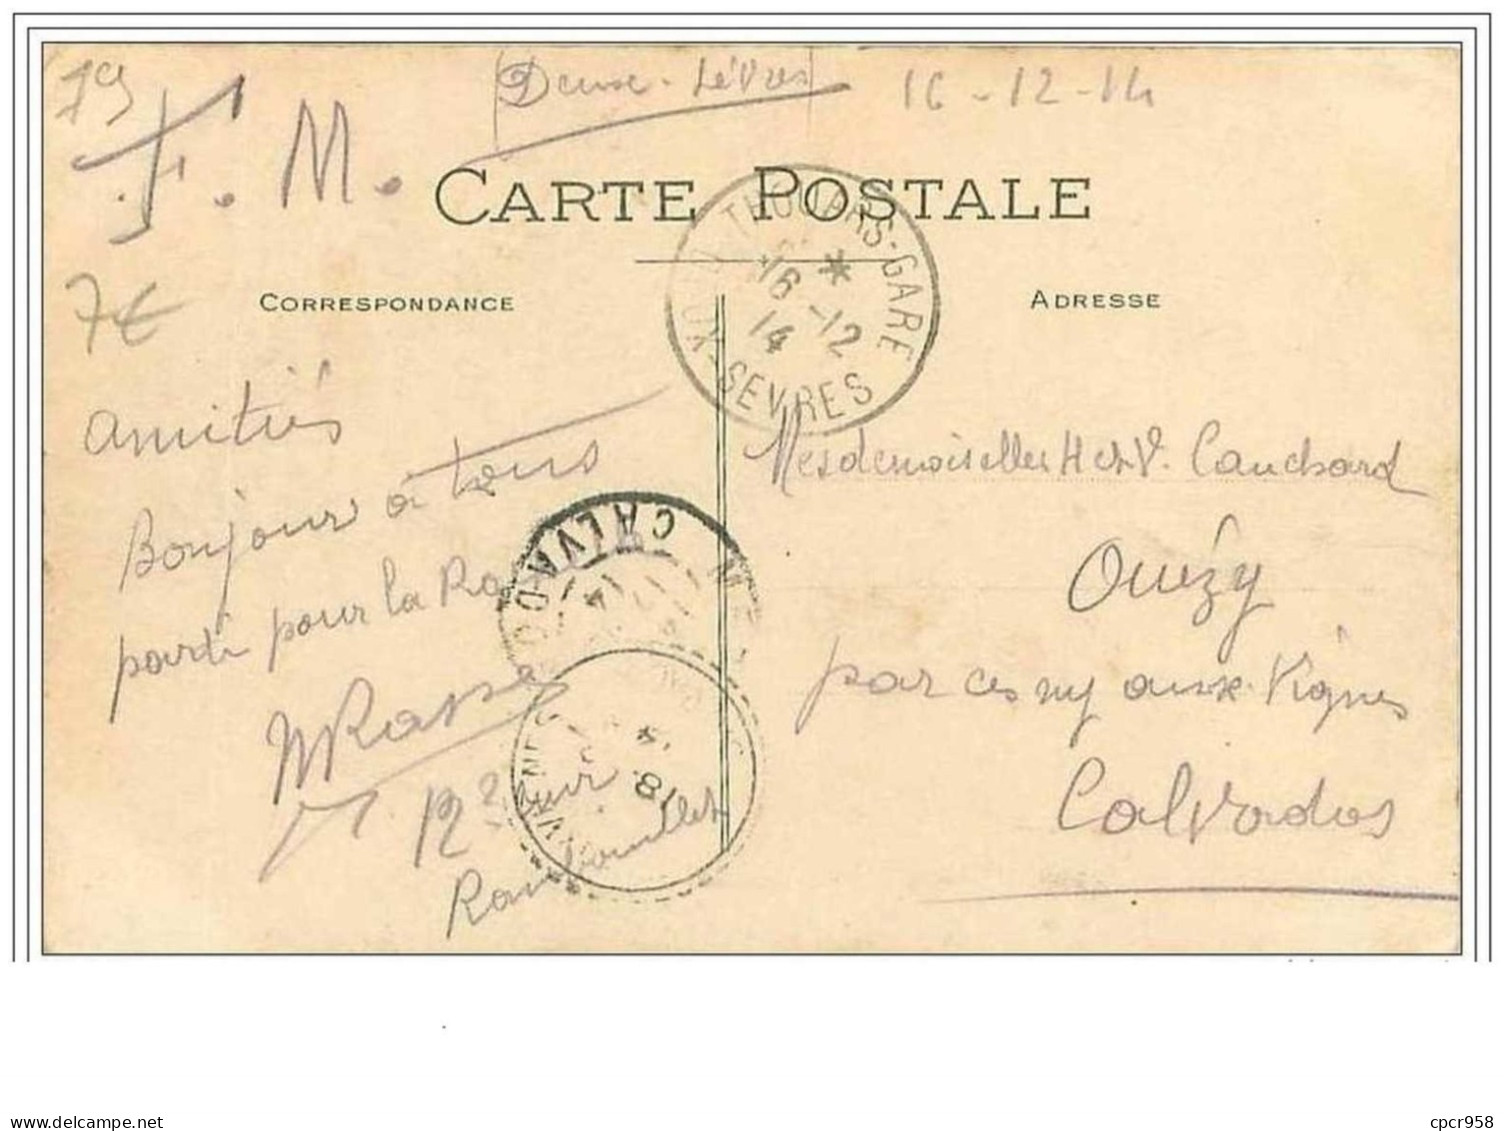 79
(Deux-Sèvres) 16-12-14
F. M.
CARTE POSTALE
7€
CORRESPONDANCE
ADRESSE
THOUARS-GARE
16-12
14
DEUX-SEVRES
amitiés
Bonjour à tous
parti pour la
12e
Rambouillet
CALVADOS
14
18
Mesdemoiselles H et V. Cauchard
Ouézy
par Cesny aux Vignes
Calvados
cpcr958